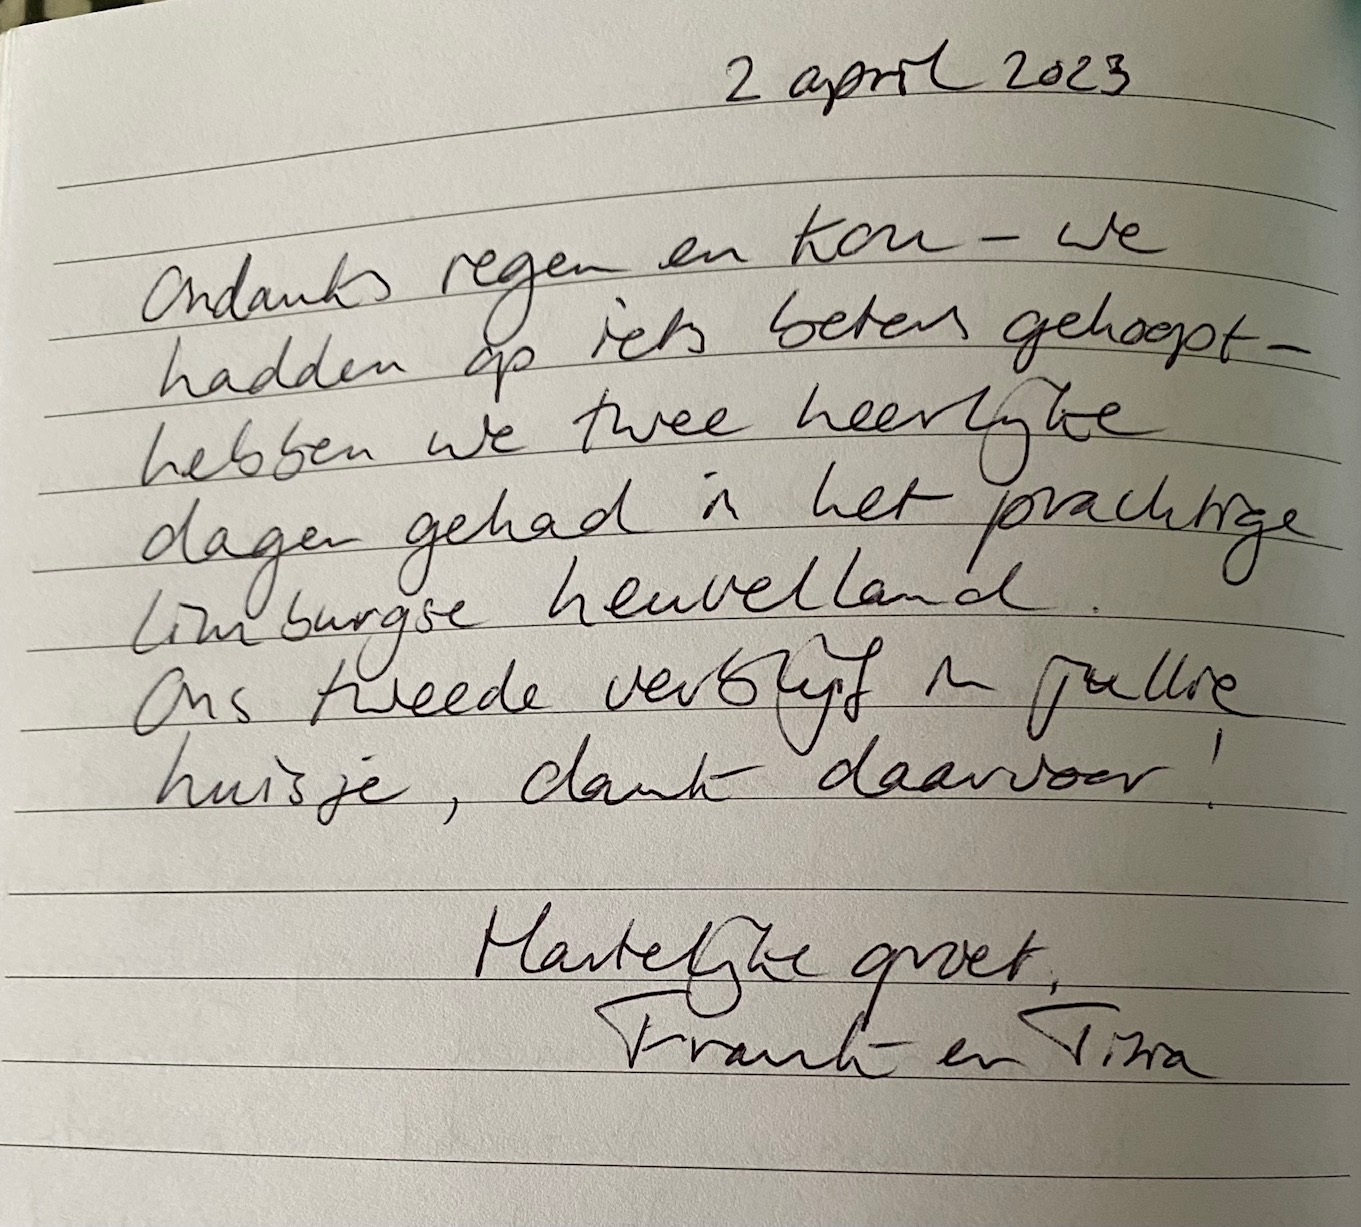 2 april 2023
Ondanks regen en kou - we
hadden op iets beters gehoopt -
hebben we twee heerlijke
dagen gehad in het prachtige
Limburgse heuvelland.
Ons tweede verblijf in jullie
huisje, dank daarvoor!
Hartelijke groet,
Frank en Tina